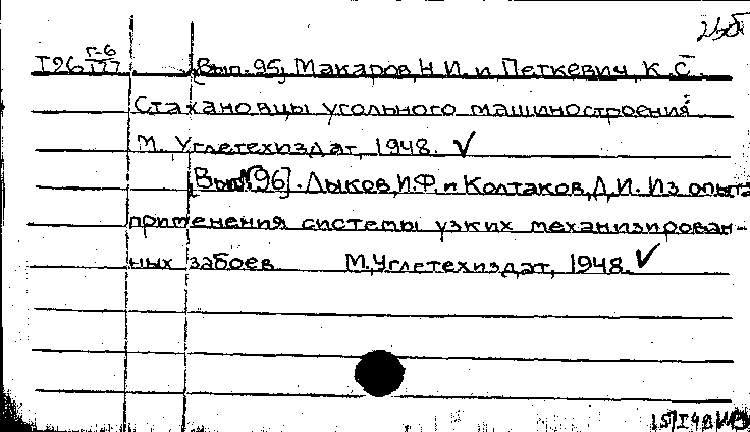 I26 Г-6/177 [Вып. 95] Макаров, Н.И. и Петкевич, К.С.
Стахановцы угольного машиностроения
М. Углетехиздат, 1948. ✓
[Вып. 96]. Лыков, И.Ф. и Колтаков, Д.И. Из опыта
применения системы узких механизирован-
ных забоев М., Углетехиздат, 1948. ✓